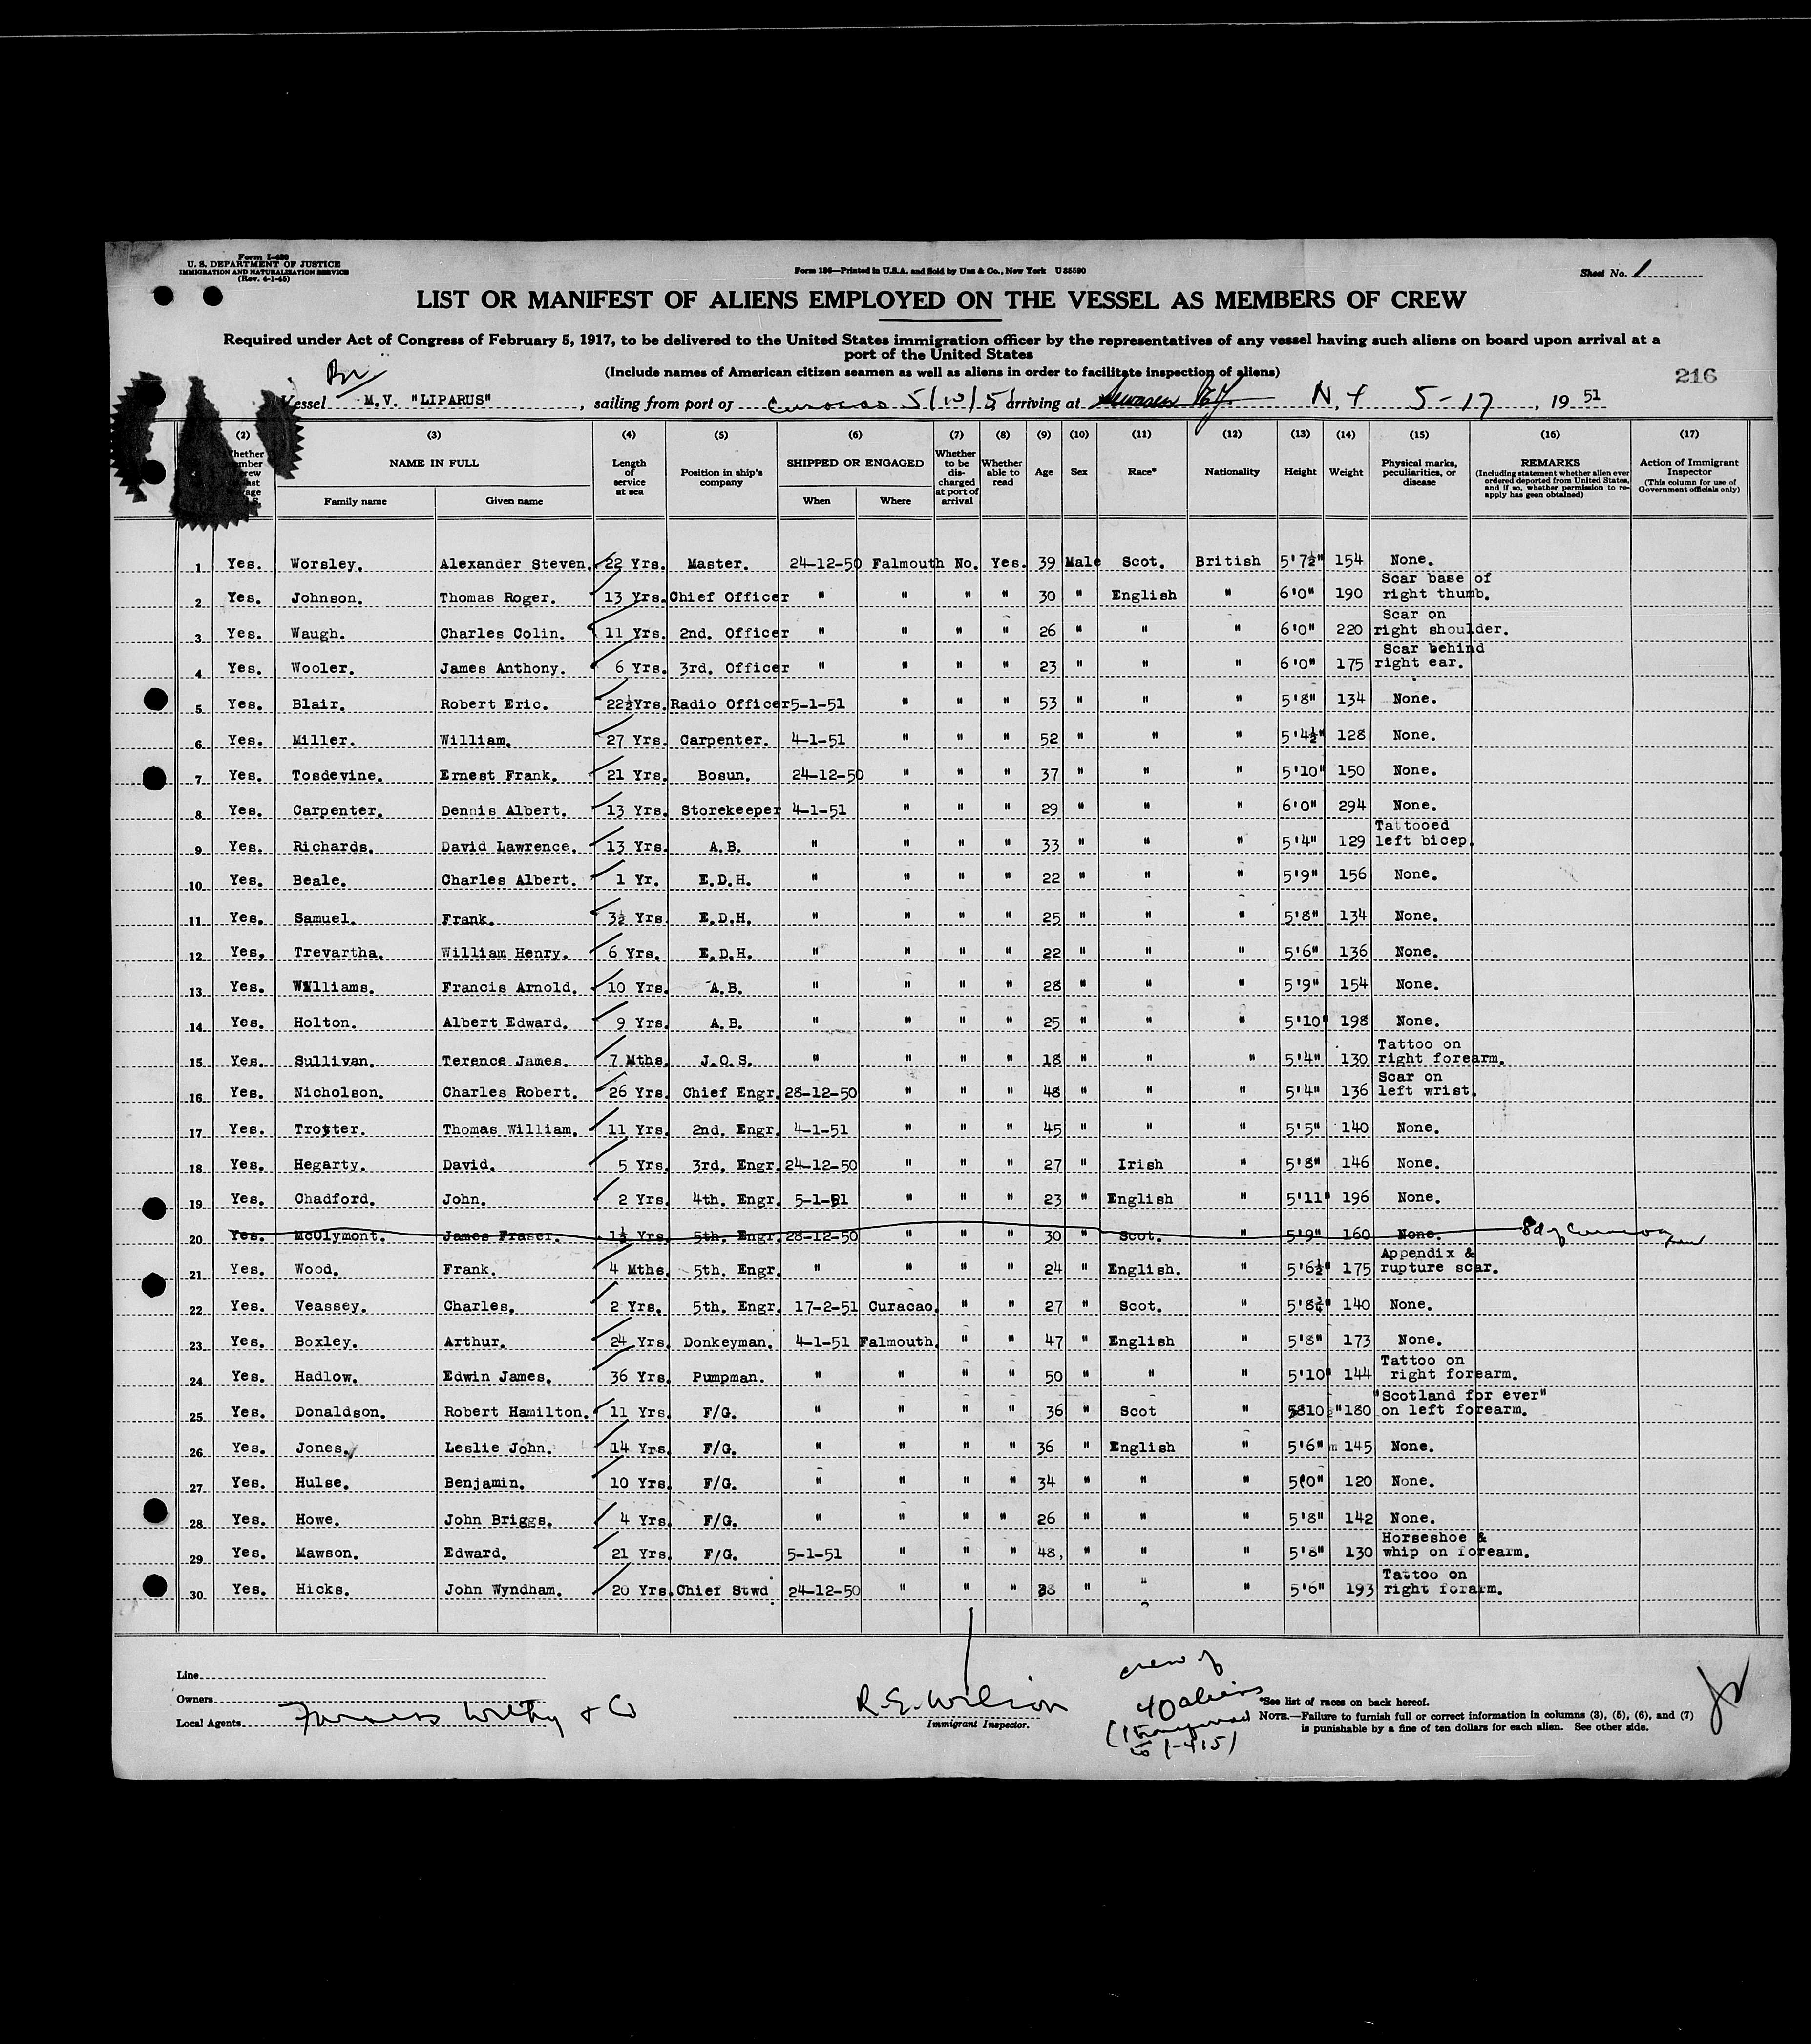 Form I-480
U. S. DEPARTMENT OF JUSTICE
IMMIGRATION AND NATURALIZATION SERVICE
(Rev. 4-1-45)
Form 136—Printed in U.S.A. and Sold by Unz & Co., New York U 35590
Sheet No. 1
LIST OR MANIFEST OF ALIENS EMPLOYED ON THE VESSEL AS MEMBERS OF CREW
Required under Act of Congress of February 5, 1917, to be delivered to the United States immigration officer by the representatives of any vessel having such aliens on board upon arrival at a
port of the United States
(Include names of American citizen seamen as well as aliens in order to facilitate inspection of aliens)
216
Br
Vessel M.V. "LIPARUS", sailing from port of Curacao 5/10/51 arriving at N.Y 5-17, 19 51
(2) (3) (4) (5) (6) (7) (8) (9) (10) (11) (12) (13) (14) (15) (16) (17)
NAME IN FULL Length of service at sea Position in ship's company SHIPPED OR ENGAGED Whether to be dis-charged at port of arrival Whether able to read Age Sex Race* Nationality Height Weight Physical marks, peculiarities, or disease REMARKS (Including statement whether alien ever ordered deported from United States, and if so, whether permission to re-apply has been obtained) Action of Immigrant Inspector (This column for use of Government officials only)
Family name Given name When Where
1 Yes. Worsley. Alexander Steven. 22 Yrs. Master. 24-12-50 Falmouth No. Yes. 39 Male Scot. British 5'7½" 154 None.
2 Yes. Johnson. Thomas Roger. 13 Yrs. Chief Officer " " " " 30 " English " 6'0" 190 Scar base of right thumb.
3 Yes. Waugh. Charles Colin. 11 Yrs. 2nd. Officer " " " " 26 " " " 6'0" 220 Scar on right shoulder.
4 Yes. Wooler. James Anthony. 6 Yrs. 3rd. Officer " " " " 23 " " " 6'0" 175 Scar behind right ear.
5 Yes. Blair. Robert Eric. 22½Yrs. Radio Officer 5-1-51 " " " 53 " " " 5'8" 134 None.
6 Yes. Miller. William. 27 Yrs. Carpenter. 4-1-51 " " " 52 " " " 5'4½" 128 None.
7 Yes. Tosdevine. Ernest Frank. 21 Yrs. Bosun. 24-12-50 " " " 37 " " " 5'10" 150 None.
8 Yes. Carpenter. Dennis Albert. 13 Yrs. Storekeeper 4-1-51 " " " 29 " " " 6'0" 294 None.
9 Yes. Richards. David Lawrence. 13 Yrs. A.B. " " " " 33 " " " 5'4" 129 Tattooed left bicep.
10 Yes. Beale. Charles Albert. 1 Yr. E.D.H. " " " " 22 " " " 5'9" 156 None.
11 Yes. Samuel. Frank. 3½ Yrs. E.D.H. " " " " 25 " " " 5'8" 134 None.
12 Yes. Trevartha. William Henry. 6 Yrs. E.D.H. " " " " 22 " " " 5'6" 136 None.
13 Yes. Williams. Francis Arnold. 10 Yrs. A.B. " " " " 28 " " " 5'9" 154 None.
14 Yes. Holton. Albert Edward. 9 Yrs. A.B. " " " " 25 " " " 5'10" 198 None.
15 Yes. Sullivan. Terence James. 7 Mths. J.O.S. " " " " 18 " " " 5'4" 130 Tattoo on right forearm.
16 Yes. Nicholson. Charles Robert. 26 Yrs. Chief Engr. 28-12-50 " " " 48 " " " 5'4" 136 Scar on left wrist.
17 Yes. Trotter. Thomas William. 11 Yrs. 2nd. Engr. 4-1-51 " " " 45 " " " 5'5" 140 None.
18 Yes. Hegarty. David. 5 Yrs. 3rd. Engr. 24-12-50 " " " 27 " Irish " 5'8" 146 None.
19 Yes. Chadford. John. 2 Yrs. 4th. Engr. 5-1-51 " " " 23 " English " 5'11" 196 None.
20 Yes. McClymont. James Fraser. 1½ Yrs. 5th. Engr. 28-12-50 " " " 30 " Scot. " 5'9" 160 None.
21 Yes. Wood. Frank. 4 Mths. 5th. Engr. " " " " 24 " English. " 5'6½" 175 Appendix & rupture scar.
22 Yes. Veassey. Charles. 2 Yrs. 5th. Engr. 17-2-51 Curacao. " " 27 " Scot. " 5'8¾" 140 None.
23 Yes. Boxley. Arthur. 24 Yrs. Donkeyman. 4-1-51 Falmouth. " " 47 " English " 5'8" 173 None.
24 Yes. Hadlow. Edwin James. 36 Yrs. Pumpman. " " " " 50 " " " 5'10" 144 Tattoo on right forearm.
25 Yes. Donaldson. Robert Hamilton. 11 Yrs. F/G. " " " " 36 " Scot " 5'10½" 180 "Scotland for ever" on left forearm.
26 Yes. Jones. Leslie John. 14 Yrs. F/G. " " " " 36 " English " 5'6" 145 None.
27 Yes. Hulse. Benjamin. 10 Yrs. F/G. " " " " 34 " " " 5'0" 120 None.
28 Yes. Howe. John Briggs. 4 Yrs. F/G. " " " " 26 " " " 5'8" 142 None.
29 Yes. Mawson. Edward. 21 Yrs. F/G. 5-1-51 " " " 48, " " " 5'8" 130 Horseshoe & whip on forearm.
30 Yes. Hicks. John Wyndham. 20 Yrs. Chief Stwd. 24-12-50 " " " 38 " " " 5'6" 193 Tattoo on right forarm.
Line
Owners
Local Agents Furness Withy & Co
R.E. Wilson
Immigrant Inspector.
crew of
40 aliens
(1 transferred
to I-415)
*See list of races on back hereof.
NOTE.—Failure to furnish full or correct information in columns (3), (5), (6), and (7)
is punishable by a fine of ten dollars for each alien. See other side.